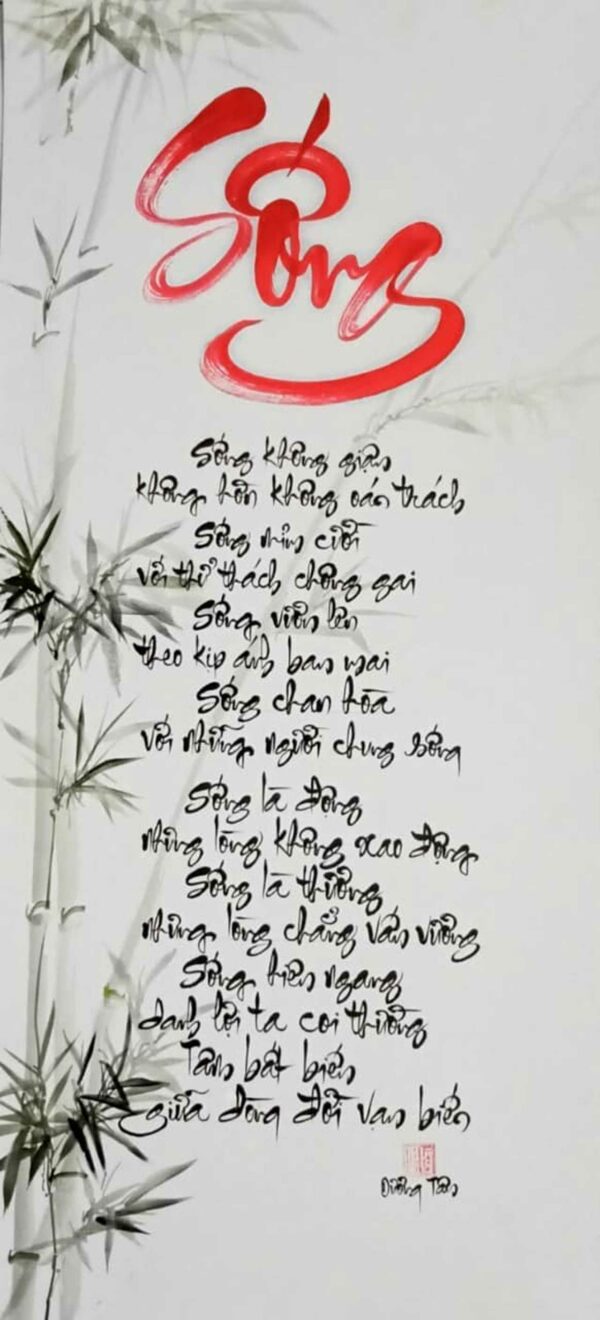 Sống
Sống không giận
không hờn không oán trách
Sống mỉm cười
với thử thách chông gai
Sống vươn lên
theo kịp ánh ban mai
Sống chan hòa
với những người chung sống
Sống là động
nhưng lòng không xao động
Sống là thương
nhưng lòng chẳng vấn vương
Sống hiên ngang
danh lợi ta coi thường
Tâm bất biến
giữa dòng đời vạn biến